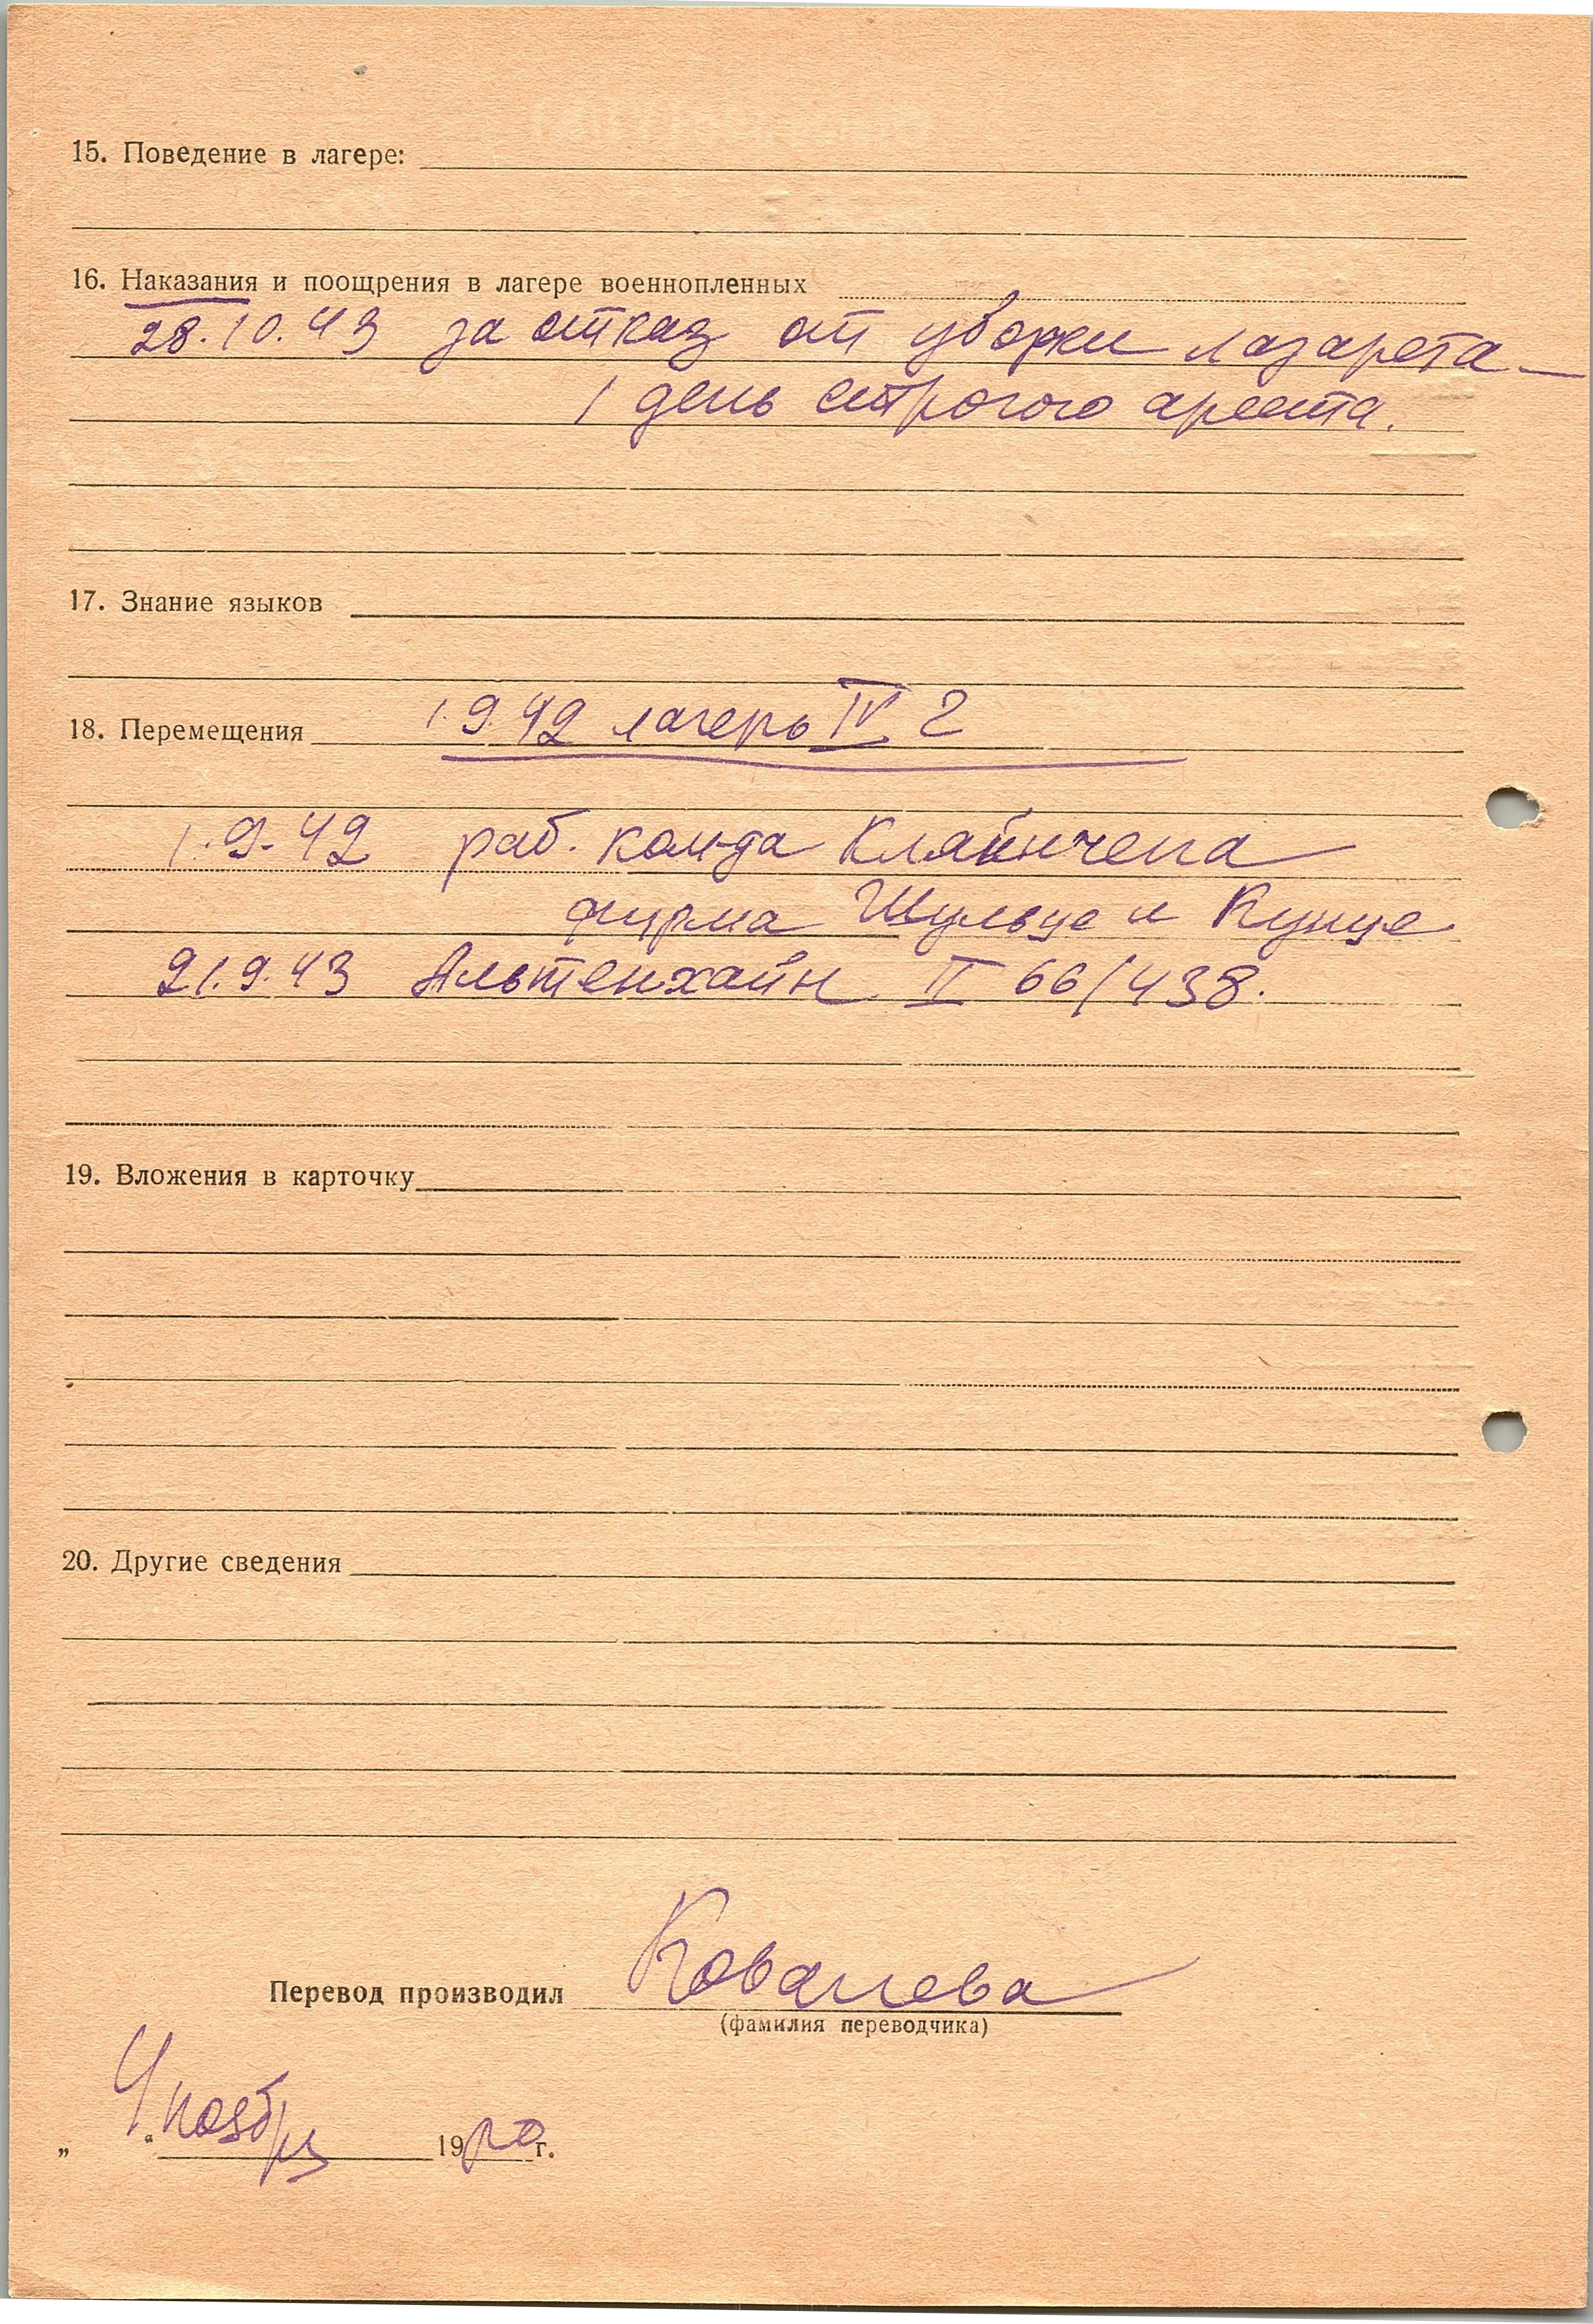 15. Поведение в лагере:
16. Наказания и поощрения в лагере военнопленных
28.10.43 за отказ от уборки лазарета —
1 день строгого ареста.
17. Знание языков
18. Перемещения 1.9.42 лагерь IV Г
1.9.42 раб. ком-да Кляйнчепа
фирма Шульце и Кунце
21.9.43 Альтенхайн II 66/438.
19. Вложения в карточку
20. Другие сведения
Перевод производил Ковалева
(фамилия переводчика)
„ 4 “ ноября 1950 г.